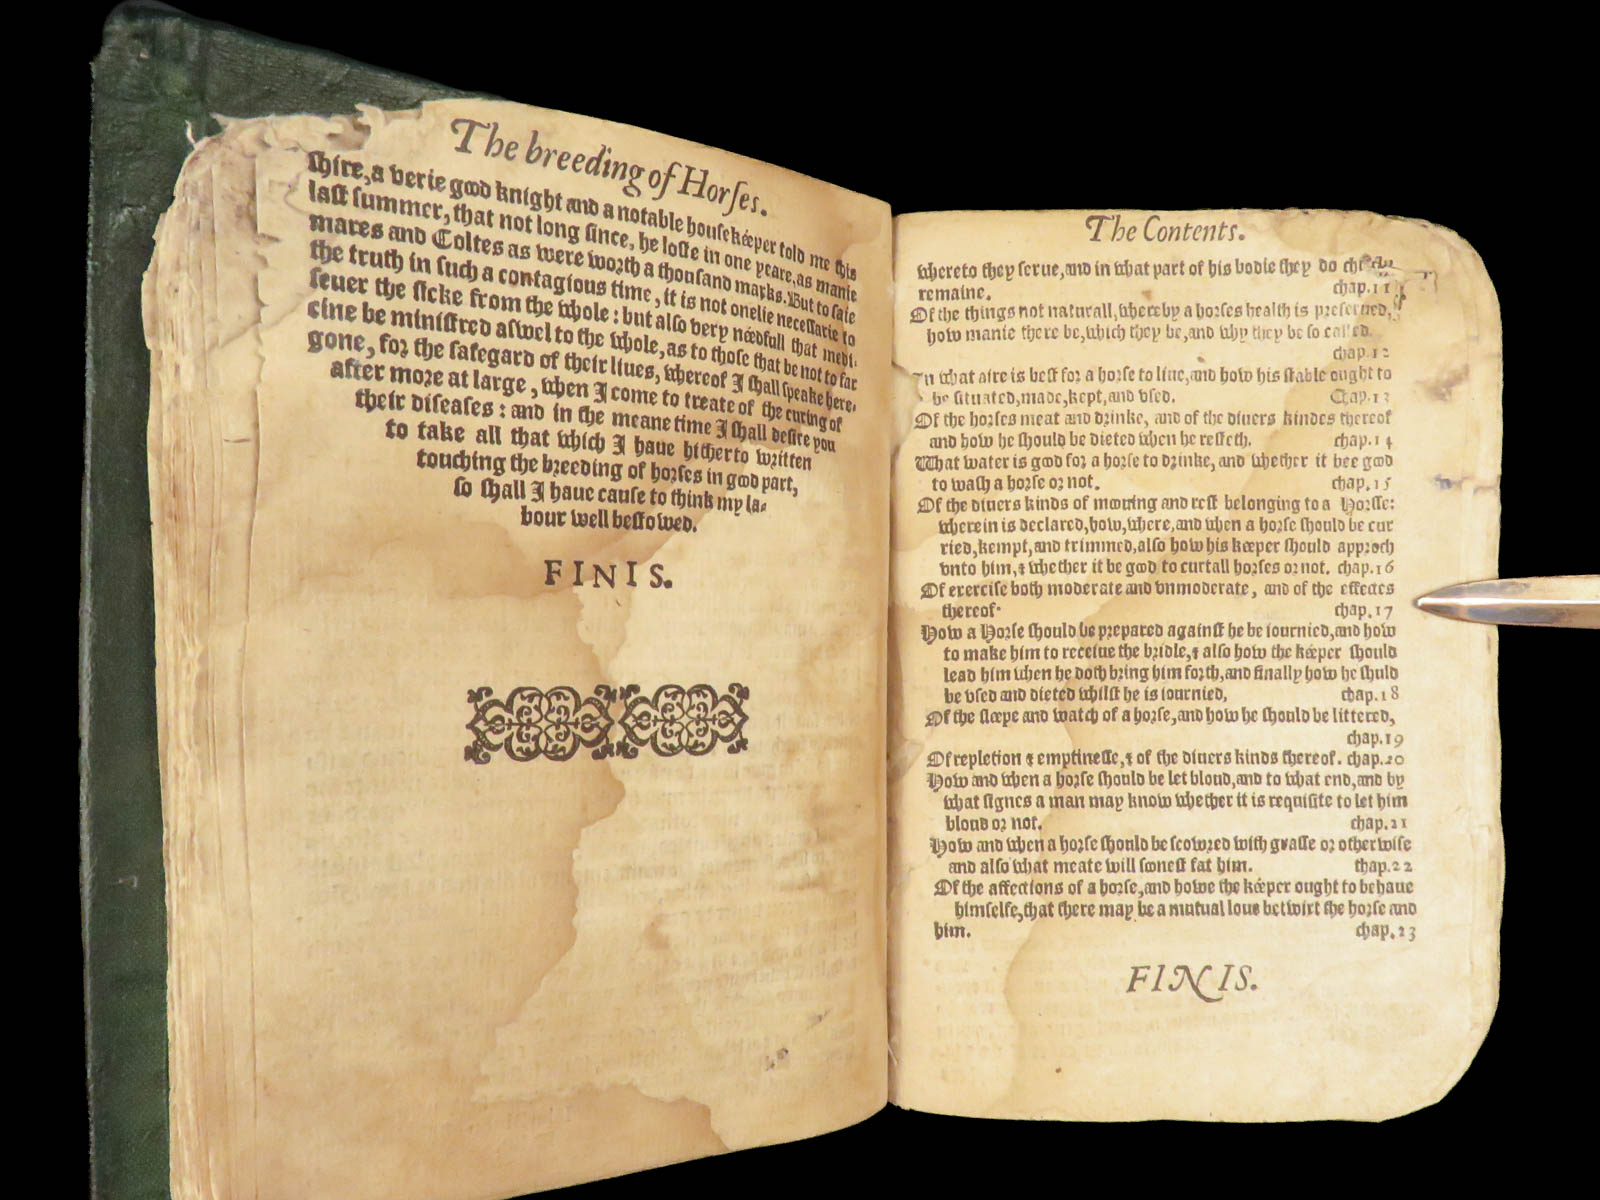 The breeding of Horses.
shire, a verie good knight and a notable housekéeper told me this
last summer, that not long since, he loste in one yeare, as manie
mares and Coltes as were worth a thousand marks. But to saie
the truth in such a contagious time, it is not onelie necessarie to
seuer the sicke from the whole: but also very néedfull that medi-
cine be ministred aswel to the whole, as to those that be not to far
gone, for the safegard of their liues, whereof I shall speake here-
after more at large, when I come to treate of the curing of
their diseases: and in the meane time I shall desire you
to take all that which I haue hitherto written
touching the breeding of horses in good part,
so shall I haue cause to think my la-
bour well bestowed.
FINIS.
The Contents.
whereto they serue, and in what part of his bodie they do
remaine. chap. 11
Of the things not naturall, whereby a horses health is preserued,
how manie there be, which they be, and why they be so called.
chap. 12
In what aire is best for a horse to liue, and how his stable ought to
be situated, made, kept, and vsed. Chap. 13
Of the horses meat and drinke, and of the diuers kindes thereof
and how he should be dieted when he resteth. chap. 14
What water is good for a horse to drinke, and whether it bee good
to wash a horse or not. chap. 15
Of the diuers kinds of moouing and rest belonging to a Horsse:
wherein is declared, how, where, and when a horse should be cur
ried, kempt, and trimmed, also how his kéeper should approch
vnto him, & whether it be good to curtall horses or not. chap. 16
Of exercise both moderate and vnmoderate, and of the effects
thereof. chap. 17
How a Horse should be prepared against he be iournied, and how
to make him to receiue the bridle, & also how the kéeper should
lead him when he doth bring him forth, and finally how he shuld
be vsed and dieted whilst he is iournied, chap. 18
Of the sléepe and watch of a horse, and how he should be littered,
chap. 19
Of repletion & emptinesse, & of the diuers kinds thereof. chap. 20
How and when a horse should be let bloud, and to what end, and by
what signes a man may know whether it is requisite to let him
bloud or not. chap. 21
How and when a horse should be scowred with grasse or otherwise
and also what meate will soonest fat him. chap. 22
Of the affections of a horse, and howe the kéeper ought to behaue
himselfe, that there may be a mutual loue betwixt the horse and
him. chap. 23
FINIS.